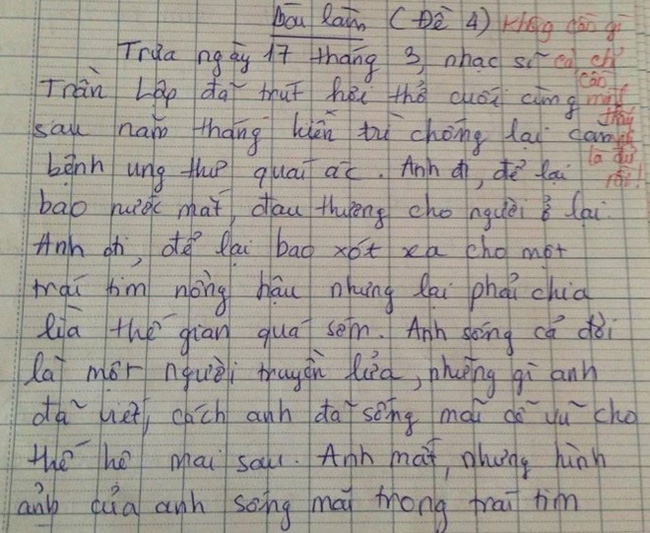 Bài làm (Đề 4) Không cần gì
Trưa ngày 17 tháng 3, nhạc sĩ cả chỉ
Trần Lập đã trút hơi thở cuối cùng cần một
sau năm tháng kiên trì chống lại căn thấy
bệnh ung thư quái ác. Anh đi, để lại là đủ
bao nước mắt, đau thương cho người ở lại. rồi!
Anh đi, để lại bao xót xa cho một
trái tim nồng hậu nhưng lại phải chia
lìa thế gian quá sớm. Anh sống cả đời
là một người truyền lửa, những gì anh
đã viết, cách anh đã sống mãi cổ vũ cho
thế hệ mai sau. Anh mất, nhưng hình
ảnh của anh sống mãi trong trái tim